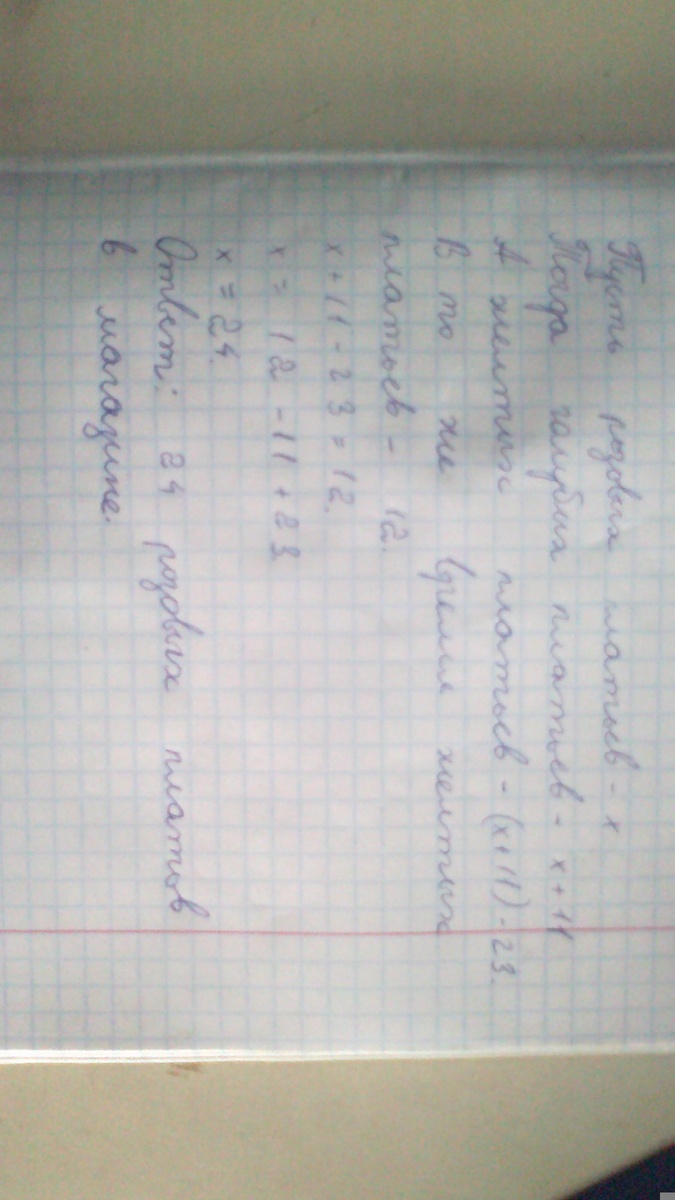 Пусть розових платьев - х
Тогда голубих платьев - х+11
А желтых платьев - (х+11)-23.
В то же время желтых
платьев - 12.
х+11-23=12.
х=12-11+23
х=24.
Ответ: 24 розовых платьев
в магазине.